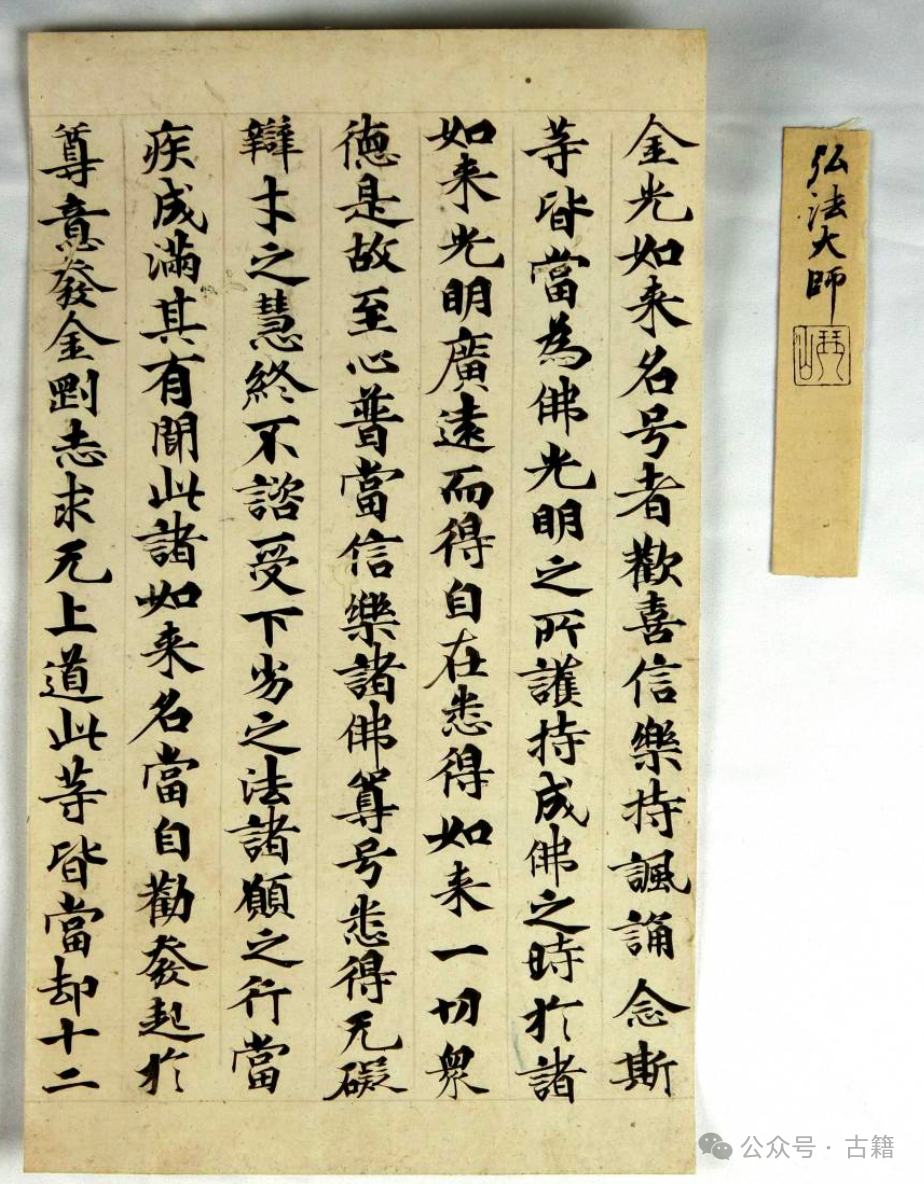 金光如来名号者歡喜信樂持諷誦念斯
等皆當為佛光明之所護持成佛之時於諸
如来光明廣遠而得自在悉得如来一切衆
德是故至心普當信樂諸佛尊号悉得无礙
辯才之慧終不諮受下劣之法諸願之行當
疾成滿其有聞此諸如来名當自勸發起於
尊意發金剛志求无上道此等皆當却十二
弘法大師
公众号·古籍